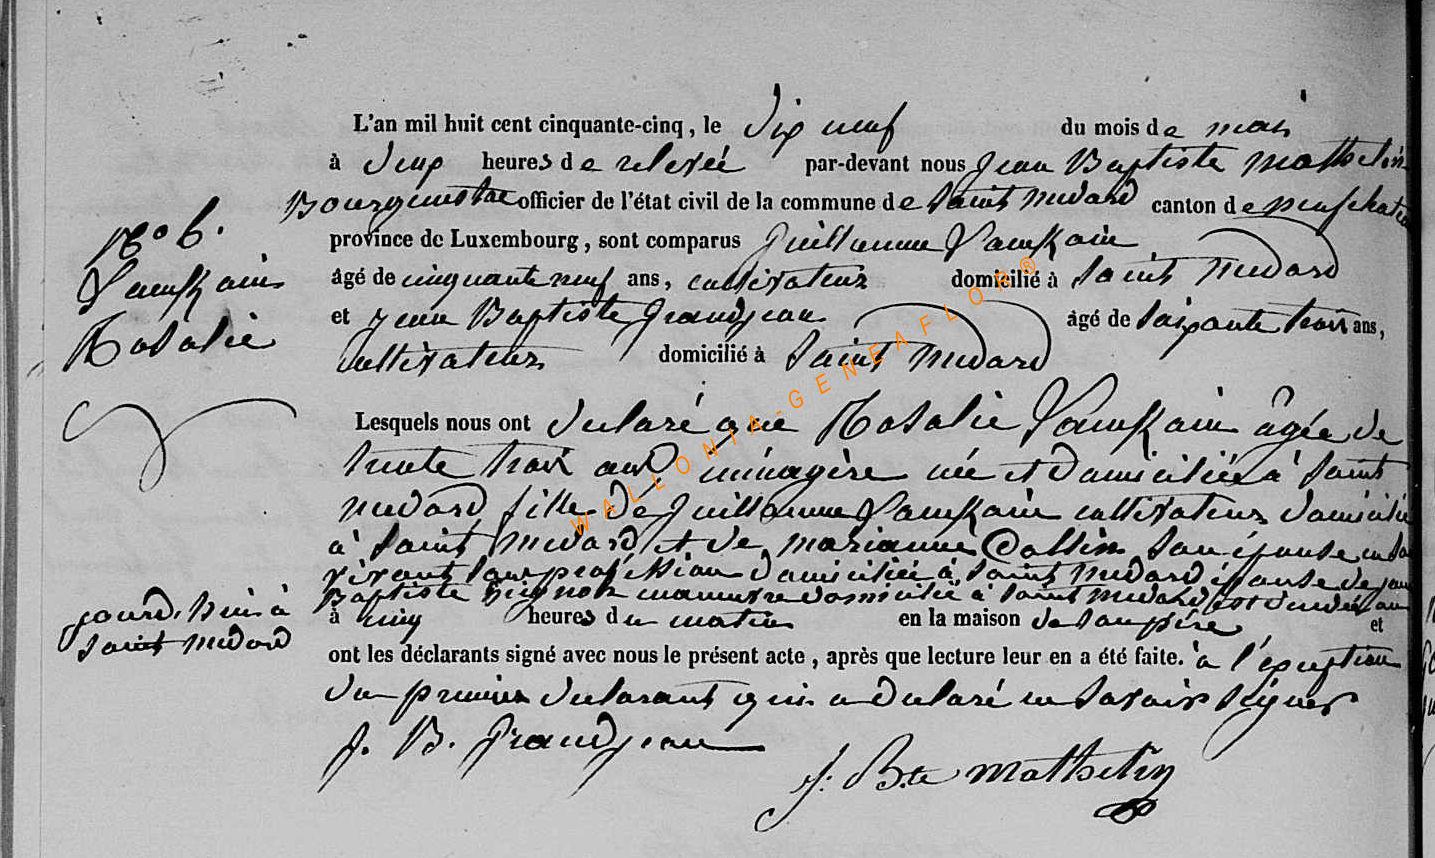 L'an mil huit cent cinquante-cinq, le dix neuf du mois de mai
à deux heures de relevée par-devant nous Jean Baptiste Mathelin
Bourgmestre officier de l'état civil de la commune de Saint Médard canton de neufchateau
province de Luxembourg, sont comparus Guillaume
âgé de cinquante neuf ans, cultivateur domicilié à Saint médard
et jean Baptiste Grandjean âgé de soixante trois ans,
cultivateur domicilié à Saint médard
N° 6.
Rosalie
Lesquels nous ont déclaré que Rosalie âgée de
trente trois ans ménagère née et domiciliée à Saint
médard fille de Guillaume cultivateur domicilié
à Saint médard et de marianne Collin son épouse en son
vivant sans profession domiciliée à Saint médard épouse de jean
Baptiste manœuvre domicilié à Saint médard est décédée au
jourd'huis à
Saint médard
à cinq heures du matin en la maison de son père et
ont les déclarants signé avec nous le présent acte, après que lecture leur en a été faite. à l'exception
du premier déclarant qui a déclaré ne savoir signer
J. B. Grandjean
J. Bte Mathelin
WALLONIA-GENEAFLOR®